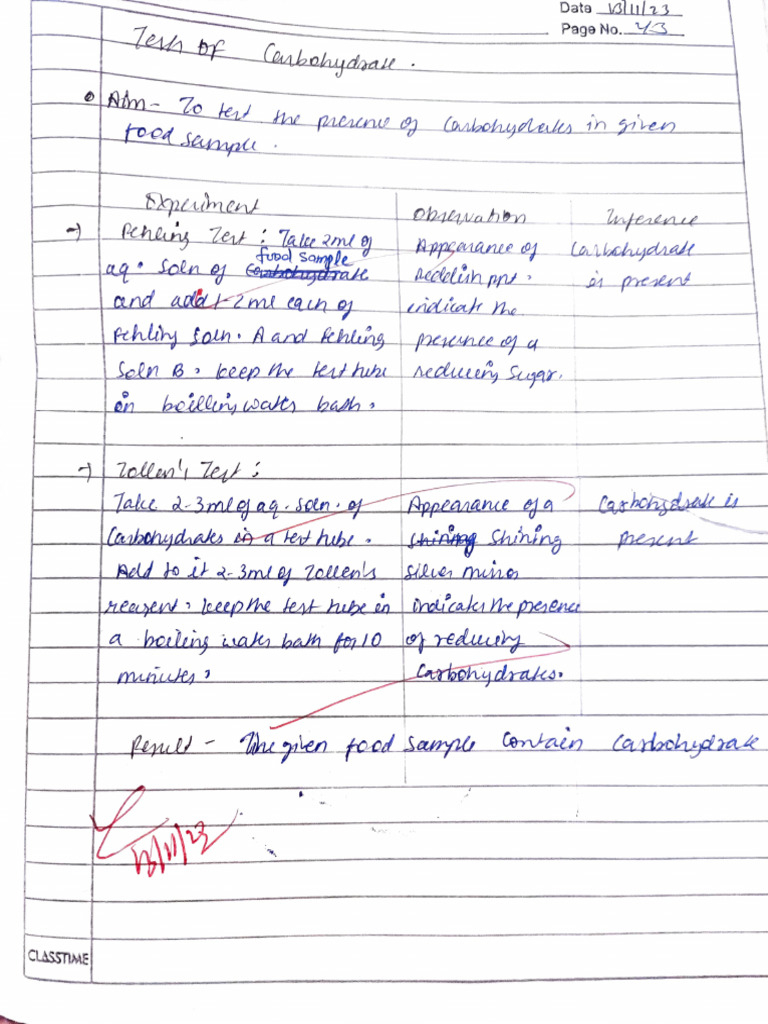 Date 13/11/23
Page No. 43
Test of Carbohydrate.
• Aim - To test the presence of Carbohydrates in given
food sample.
Experiment
Observation
Inference
→ Fehling Test : Take 2ml of
food sample
aq. Soln of Carbohydrate
and add 1-2ml each of
Fehling Soln. A and Fehling
Soln B. keep the test tube
in boilling water bath.
Appearance of
Reddish ppt.
indicate the
presence of a
reducing sugar.
Carbohydrate
is present
→ Tollen's Test :
Take 2-3ml of aq. Soln. of
Carbohydrates in a test tube.
Add to it 2-3ml of Tollen's
reagent. keep the test tube in
a boiling water bath for 10
minutes.
Appearance of a
shining Shining
silver mirror
indicates the presence
of reducing
Carbohydrates.
Carbohydrate is
present
Result - The given food sample contain Carbohydrate
13/11/23
CLASSTIME